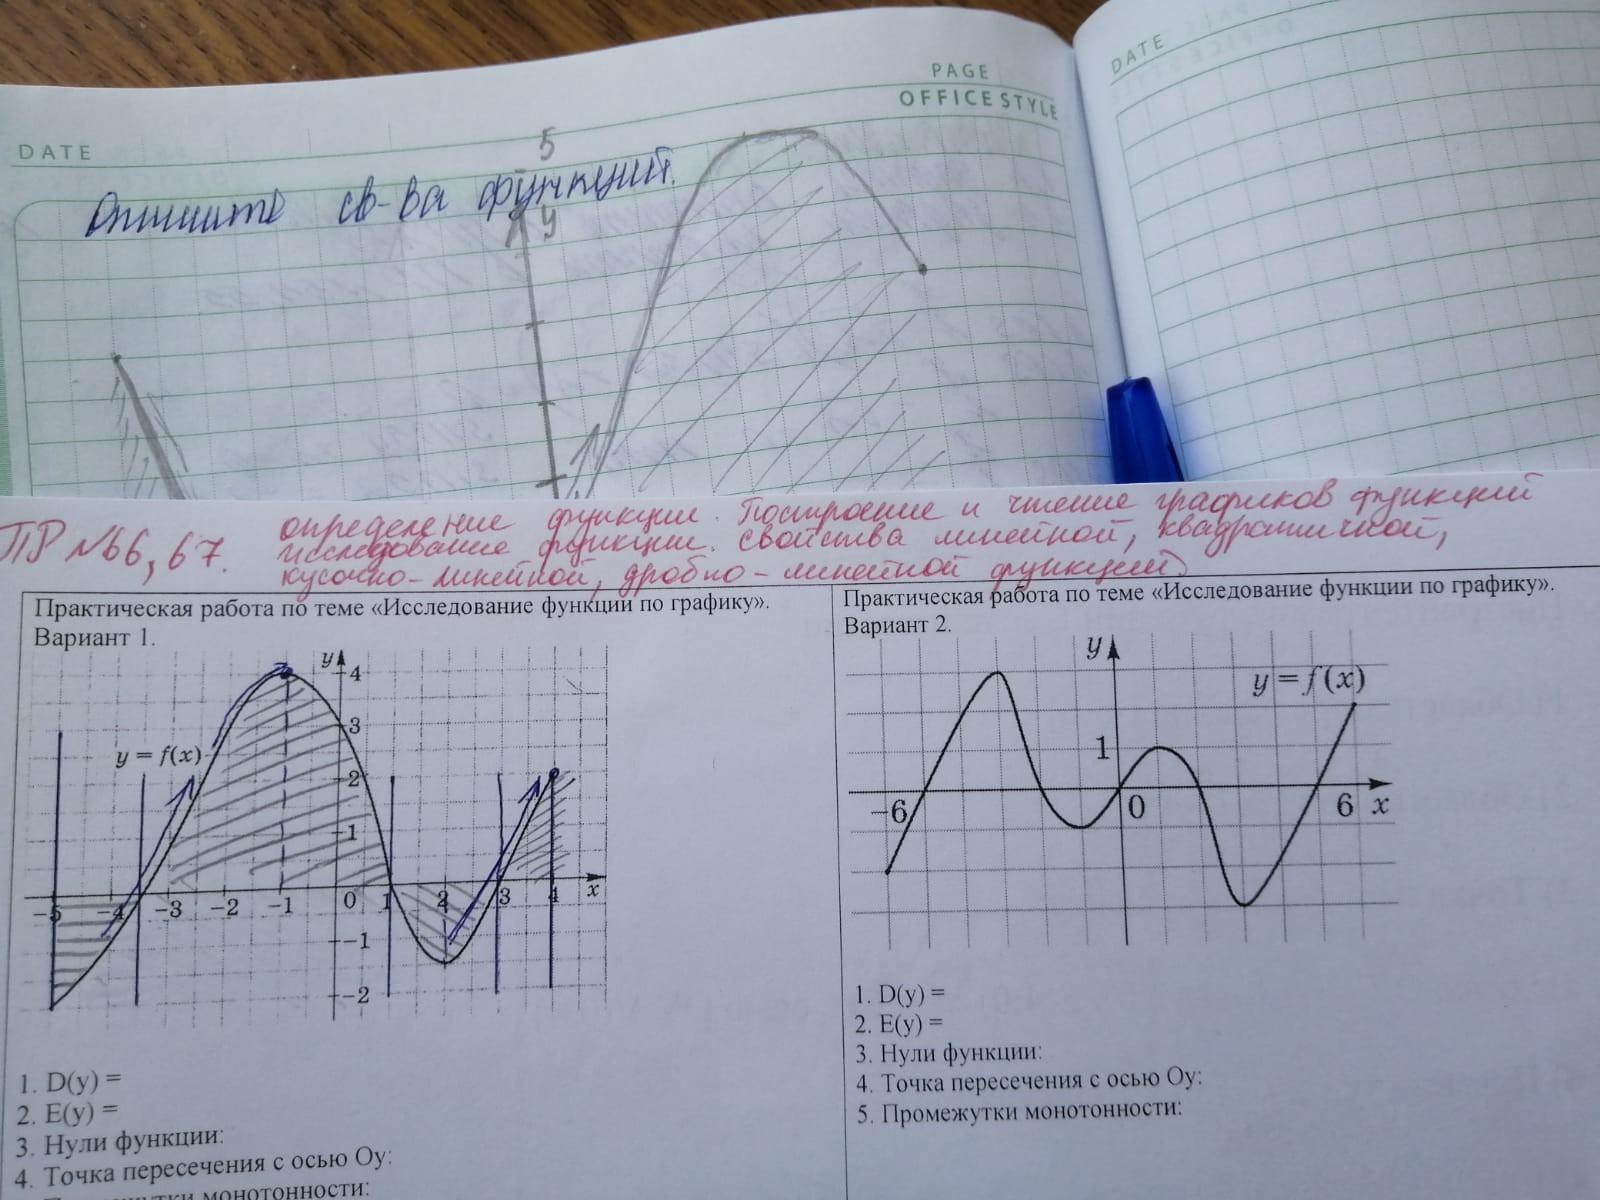 PAGE
OFFICE STYLE
DATE
DATE
5
Опишите св-ва функций.
y
ПР №66, 67.
определение функции. Построение и чтение графиков функций
исследование функции. Свойства линейной, квадратичной,
кусочно-линейной, дробно-линейной функций)
Практическая работа по теме «Исследование функции по графику».
Вариант 1.
y
4
3
y = f(x)
2
1
-5 -4 -3 -2 -1 0 1 2 3 4 x
-1
-2
1. D(y) =
2. E(y) =
3. Нули функции:
4. Точка пересечения с осью Oy:
монотонности:
Практическая работа по теме «Исследование функции по графику».
Вариант 2.
y
y = f(x)
1
-6 0 6 x
1. D(y) =
2. E(y) =
3. Нули функции:
4. Точка пересечения с осью Oy:
5. Промежутки монотонности: